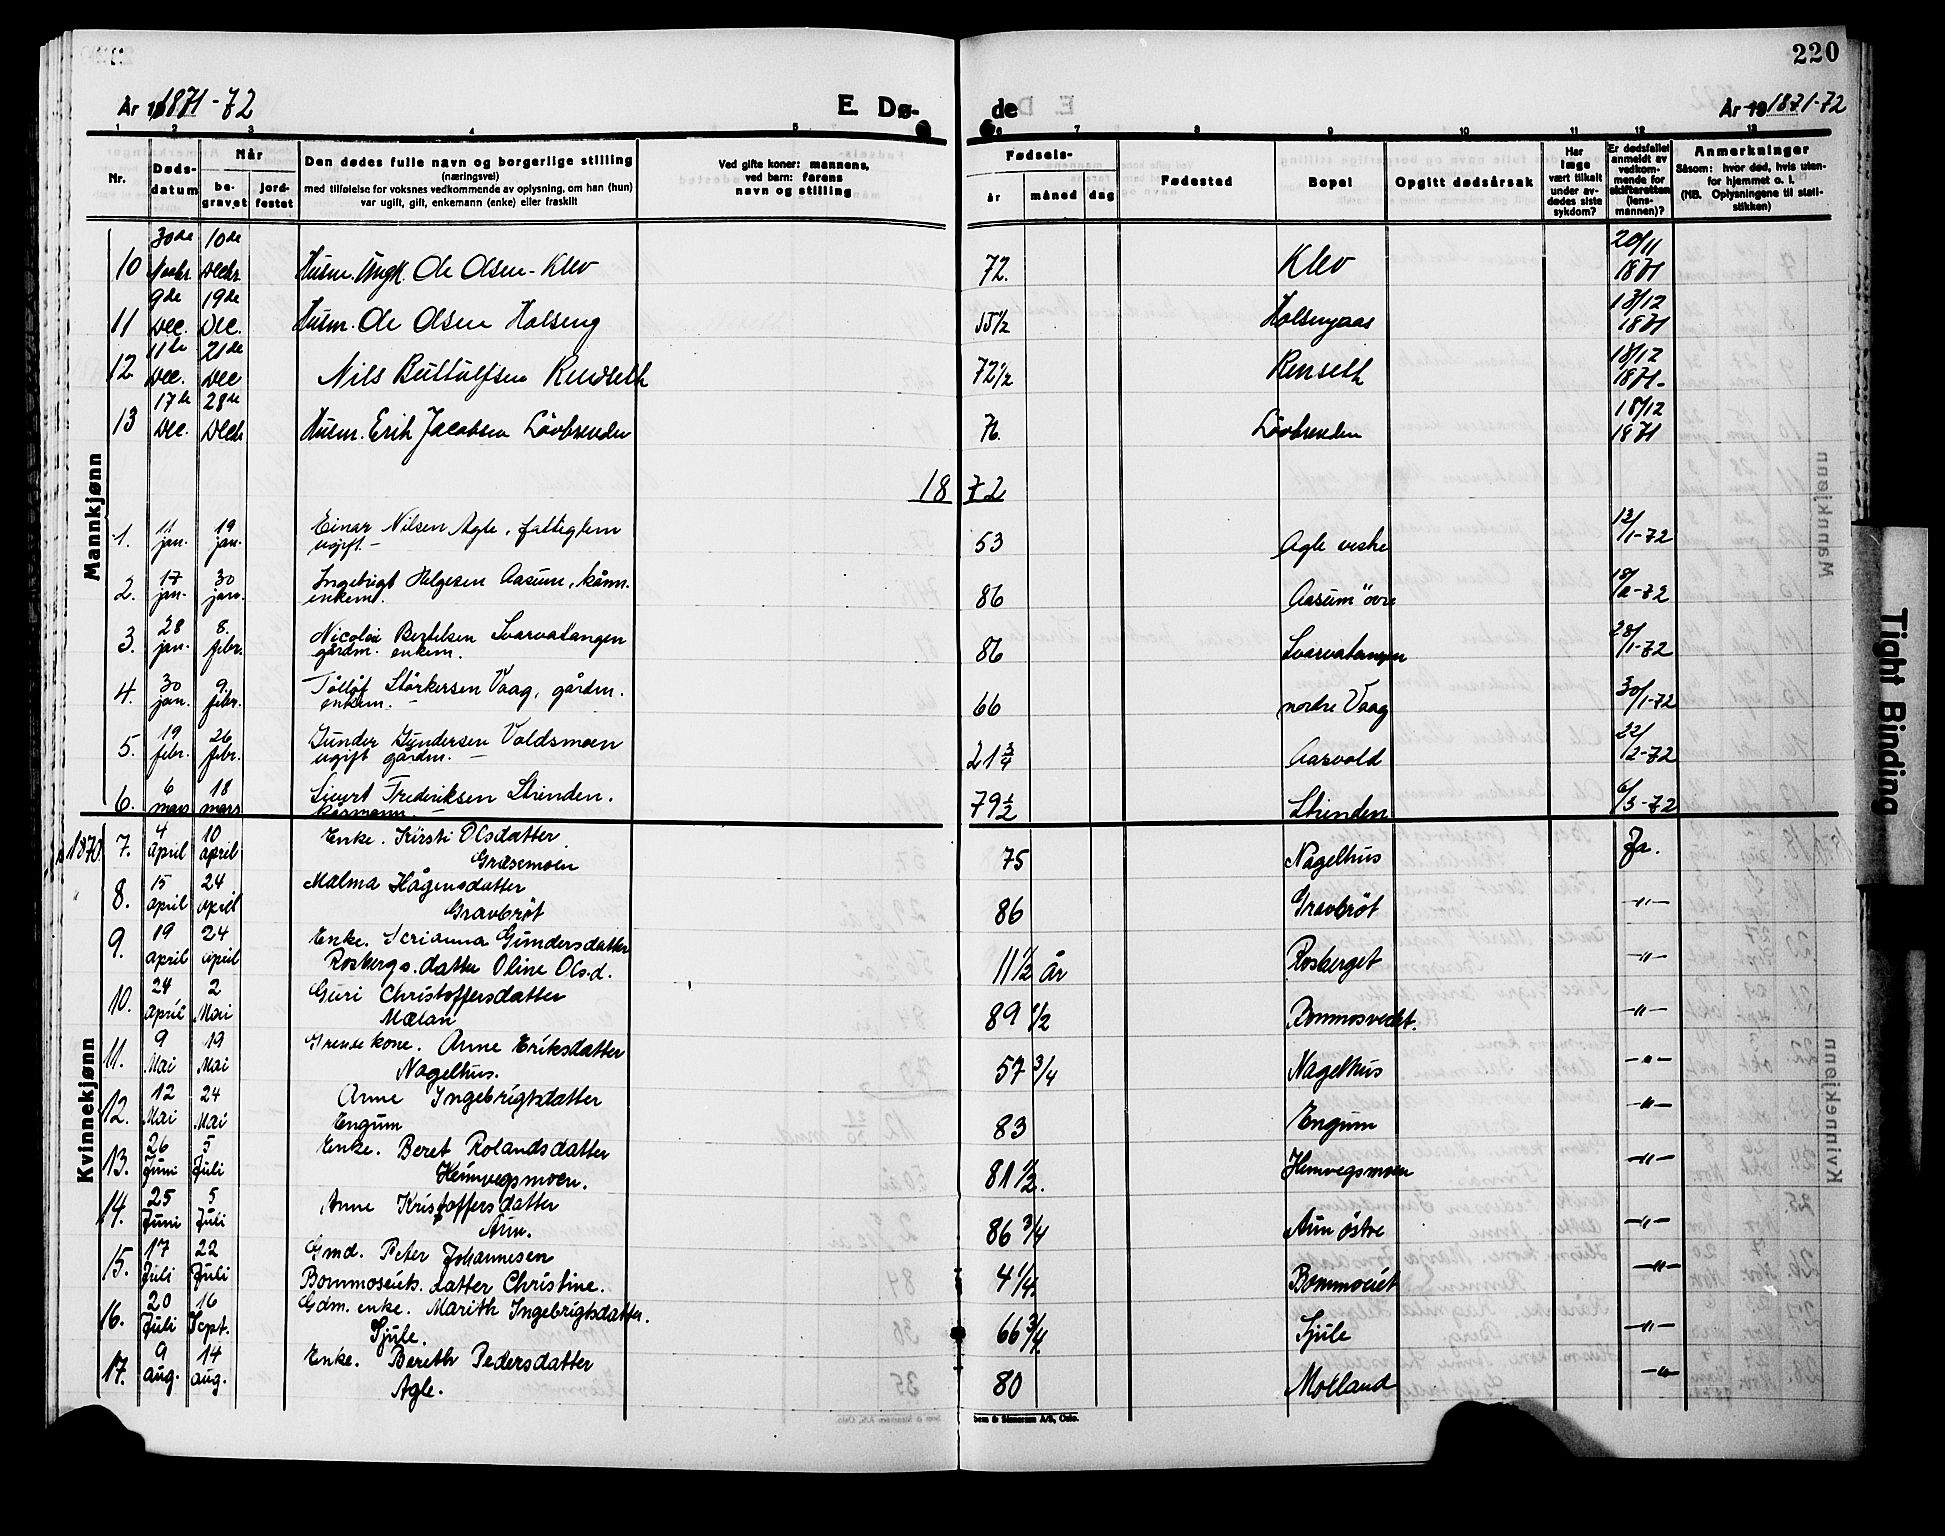 220
År 1871-72
E. Dø-
de
År 19 1871-72
1 2 3 4 5
6 7 8 9 10 11 12 13
Nr.
Døds-
datum
Når
be-
gravet
jord-
festet
Den dødes fulle navn og borgerlige stilling
(næringsvei)
med tilføielse for voksnes vedkommende av oplysning, om han (hun)
var ugift, gift, enkemann (enke) eller fraskilt
Ved gifte koner: mannens,
ved barn: farens
navn og stilling
Fødsels-
år
måned
dag
Fødested
Bopel
Opgitt dødsårsak
Har
læge
vært tilkalt
under av-
dødes siste
sykdom?
Er dødsfallet
anmeldt av
vedkom-
mende for
skifteretten
(lens-
mannen)?
Anmerkninger
Såsom: hvor død, hvis uten-
for hjemmet o. l.
(NB. Oplysningene til stati-
stikken)
Mannkjønn
10 30de Novbr. 10de Decbr. Husm. Ungk. Ole Olsen-Klev 72. Klev 20/11 1871
11 9de Dec. 19de Dec. Husm. Ole Olsen Holseng 55 1/2 Holsengaas 13/12 1871
12 11te Dec. 21de Dec Nils Bultulfsen Renseth 72 1/2 Renseth 18/12 1871-
13 17de Dec. 28de Decbr Husm. Erik Jacobsen Lövbrenden 71. Lövbrenden 18/12 1871
1872
1. 11 jan. 19 jan. Einar Nilsen Agle, fattiglem
ugift. 53 Agle vestre 12/1-72
2. 17 jan. 30 jan. Ingebrigt Helgesen Aasum, kånn.
enkem. 86 Aasum övre 18/1-72
3. 28 jan. 8. febr. Nicolai Bertelsen Svarvatangen
gårdm. enkem. 86 Svarvatangen 28/1-72
4. 30 jan. 9. febr. Tollöf Störkersen Vaag, gårdm.
enkem. 66 nordre Vaag 30/1-72
5. 19 febr. 26 febr. Gunder Gundersen Valdsmoen
ugift gårdm. 21 3/4 Aarvold 22/2-72
6. 6 mars 18 mars Sivert Frederiksen Strinden.
kårmann. 79 1/2 Strinden 6/3-72
Kvinnekjønn
1870 7. 4 April 10 april Enke. Kirsti Olsdatter
Græsemoen 75 Nagelhus Ja.
8. 15 april 24 april Malma Hågensdatter
Gravbröt 86 Gravbröt -"-
9. 19 april 24 april Enke. Serianna Gundersdatter
Rosbergs. datter Oline Olsd. 11 1/2 år Rosberget -"-
10. 24 april 2 Mai Guri Christoffersdatter
Mælan 89 1/2 Bommosvedt. -"-
11. 9 Mai 19 Mai kone. Anne Eriksdatter
Nagelhus. 57 3/4 Nagelhus -"-
12. 12 Mai 24 Mai Anne Ingebrigtsdatter
Engum 83 Engum -"-
13. 26 Juni 5 Juli Enke. Beret Rolandsdatter
Heimvegsmoen. 81 1/2. Hemvegsmoen -"-
14. 25 Juni 5 Juli Anne Kristoffersdatter
Aun. 86 3/4 Aun östre -"-
15. 17 Juli 22 Juli Gmd. Peter Johannesen
Bommoseiets. datter Christine. 4 1/4 Bommoeiet -"-
16. 20 Juli 16 Sept. Gdm. enke. Marith Ingebrigtsdatter.
Sjule. 66 3/4 Sjule -"-
17. 9 aug. 14 aug. Enke. Bereth Pedersdatter
Agle. 80 Molland -"-
Tight Binding